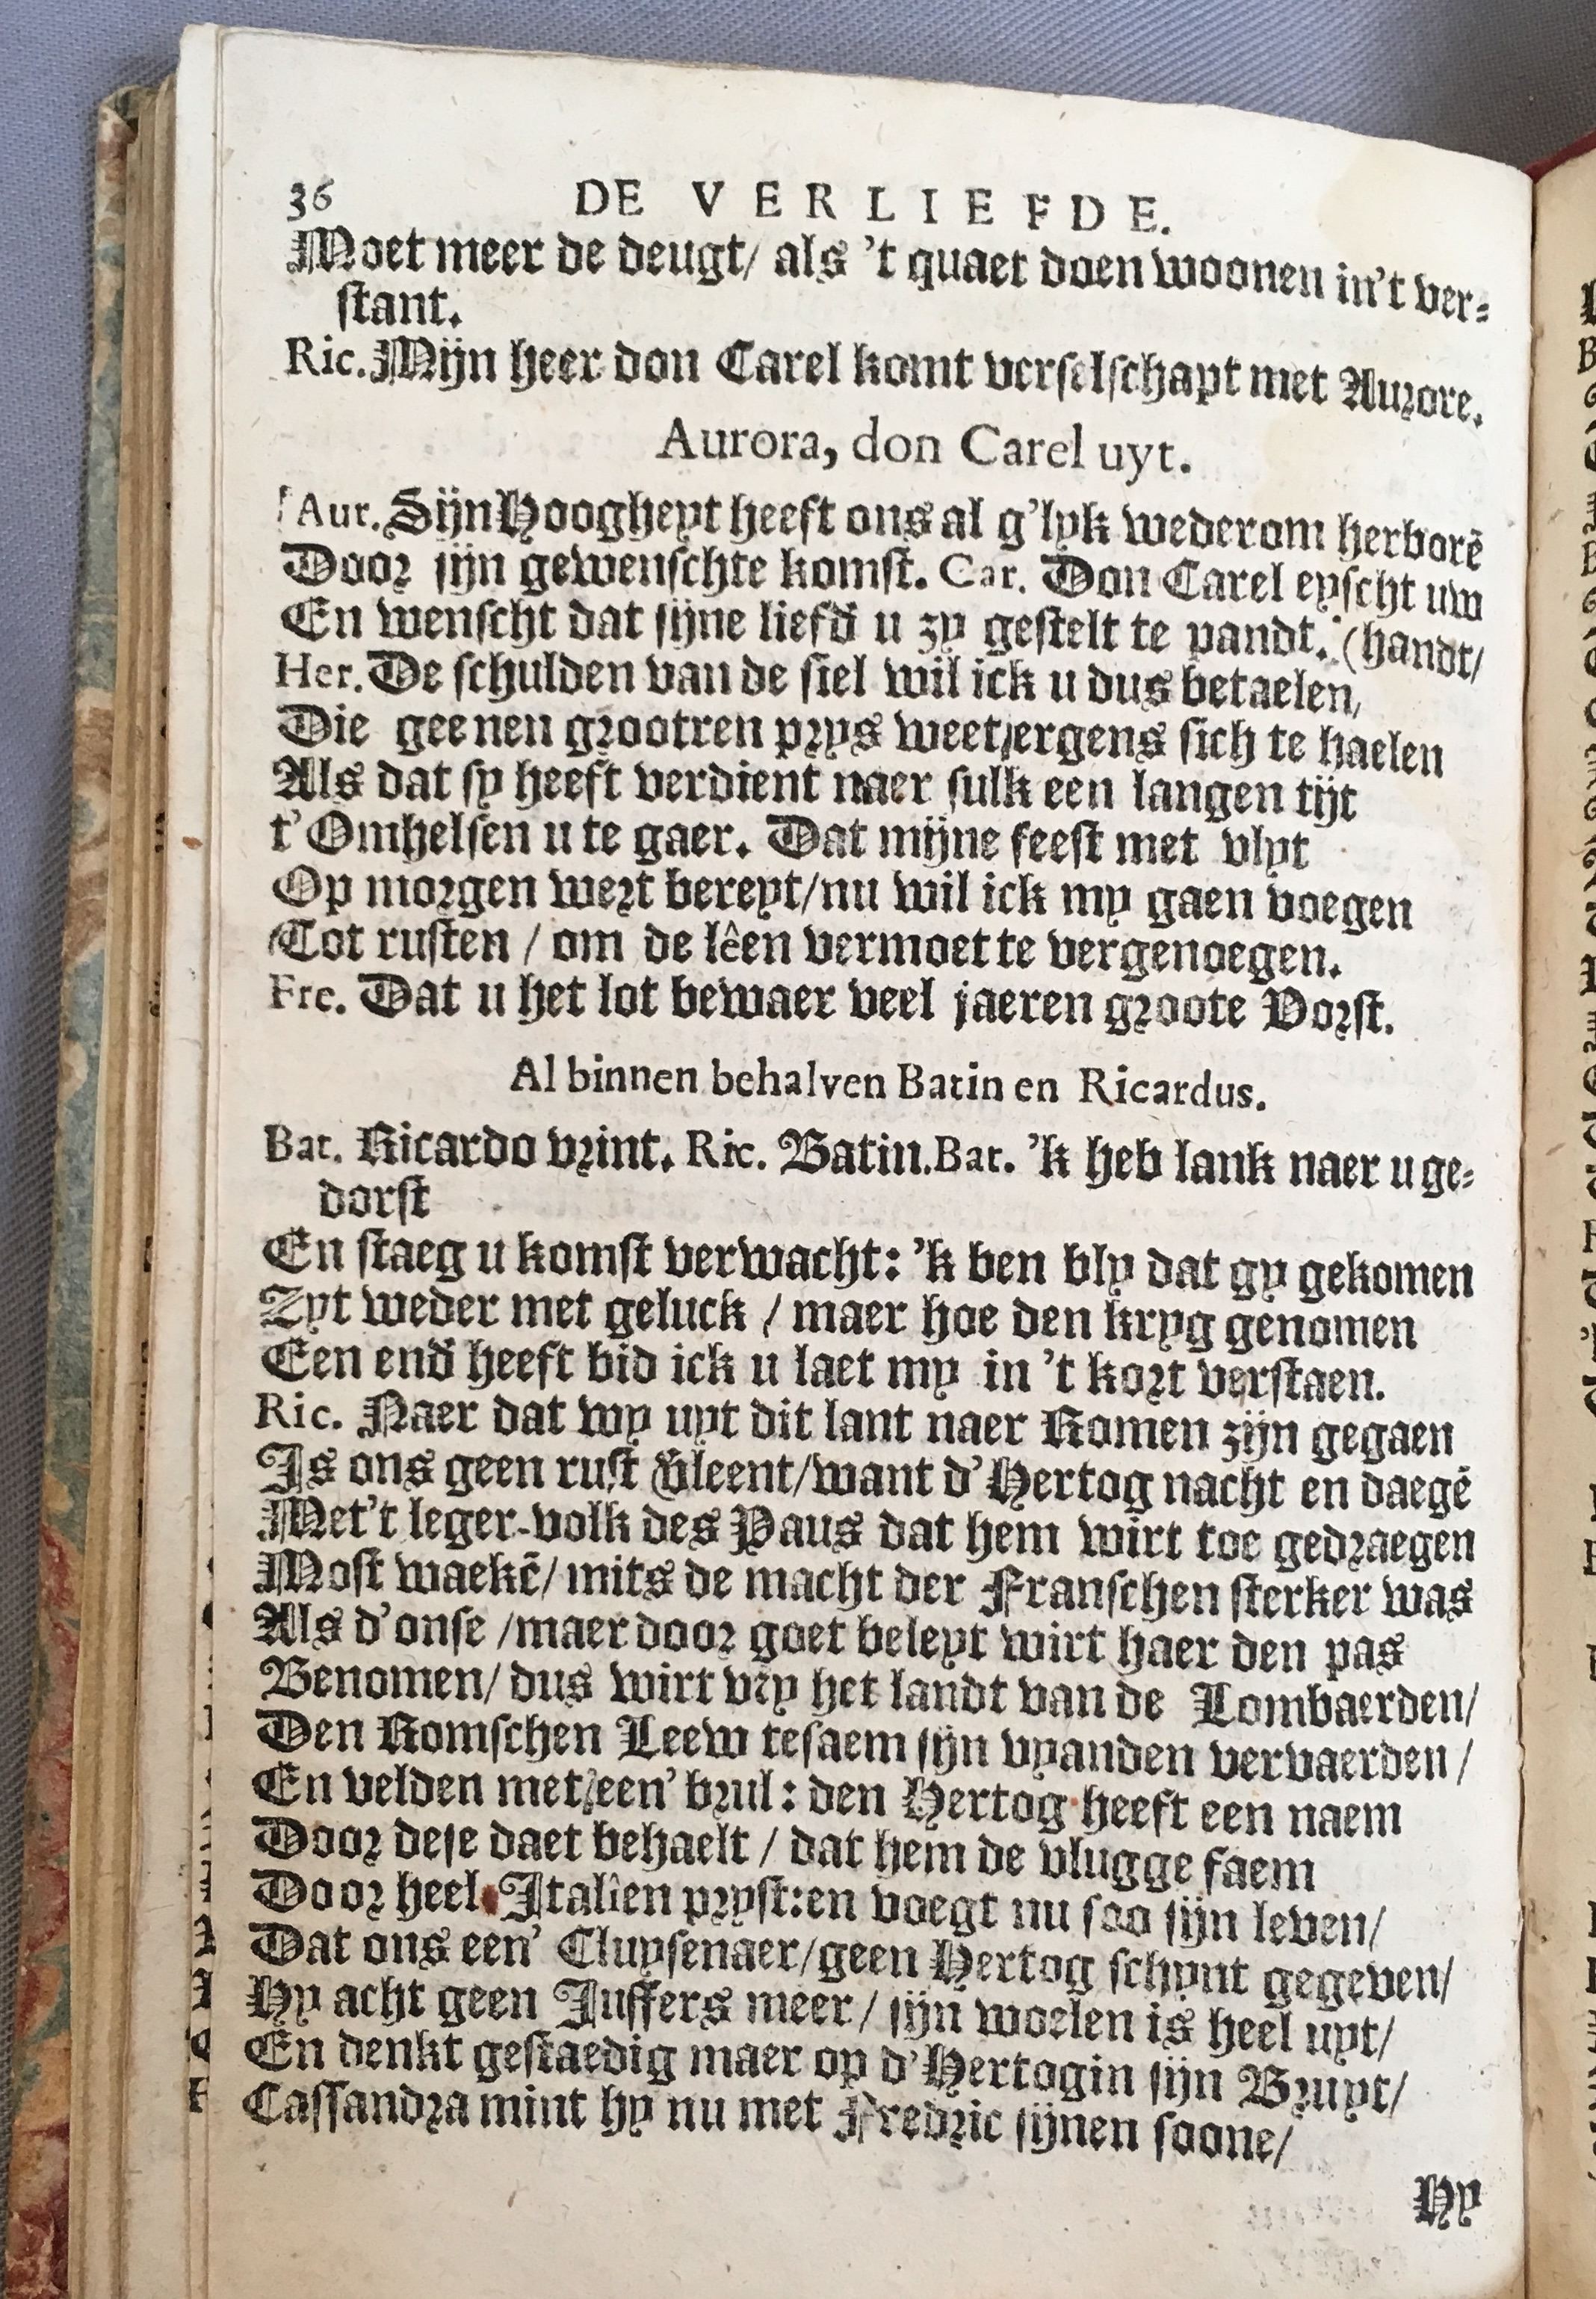 36 DE VERLIEFDE.
Moet meer de deugt/ als 't quaet doen woonen in't ver-
stant.
Ric. Mijn heer don Carel komt verselschapt met Aurore.
Aurora, don Carel uyt.
Aur. Sijn Hoogheyt heeft ons al g'lyk wederom herborē
Door sijn gewenschte komst. Car. Don Carel eyscht uw
En wenscht dat sijne liefd' u zy gestelt te pandt. (handt/
Her. De schulden van de siel wil ick u dus betaelen,
Die geenen grootren prys weet ergens sich te haelen
Als dat sy heeft verdient naer sulk een langen tijt
t'Omhelsen u te gaer. Dat mijne feest met vlyt
Op morgen wert bereyt/ nu wil ick my gaen voegen
Tot rusten / om de lêen vermoet te vergenoegen.
Fre. Dat u het lot bewaer veel jaeren groote Vorst.
Al binnen behalven Batin en Ricardus.
Bat. Ricardo vrint. Ric. Batin. Bat. 'k heb lank naer u ge-
dorst
En staeg u komst verwacht: 'k ben bly dat gy gekomen
Zyt weder met geluck / maer hoe den kryg genomen
Een end' heeft bid ick u laet my in 't kort verstaen.
Ric. Naer dat wy uyt dit lant naer Romen zijn gegaen
Is ons geen rust v'leent/ want d'Hertog nacht en daegē
Met't leger-volk des Paus dat hem wirt toe gedraegen
Most waekē/ mits de macht der Franschen sterker was
Als d'onse / maer door goet beleyt wirt haer den pas
Benomen/ dus wirt vry het landt van de Lombaerden/
Den Romschen Leew tesaem sijn vyanden vervaerden /
En velden met een' brul: den Hertog heeft een naem
Door dese daet behaelt / dat hem de vlugge faem
Door heel Italîen pryst: en voegt nu soo sijn leven/
Dat ons een' Cluysenaer/ geen Hertog schynt gegeven/
Hy acht geen Juffers meer/ sijn woelen is heel uyt/
En denkt gestaedig maer op d'Hertogin sijn Bruyt/
Cassandra mint hy nu met Fredric sijnen soone/
Hy